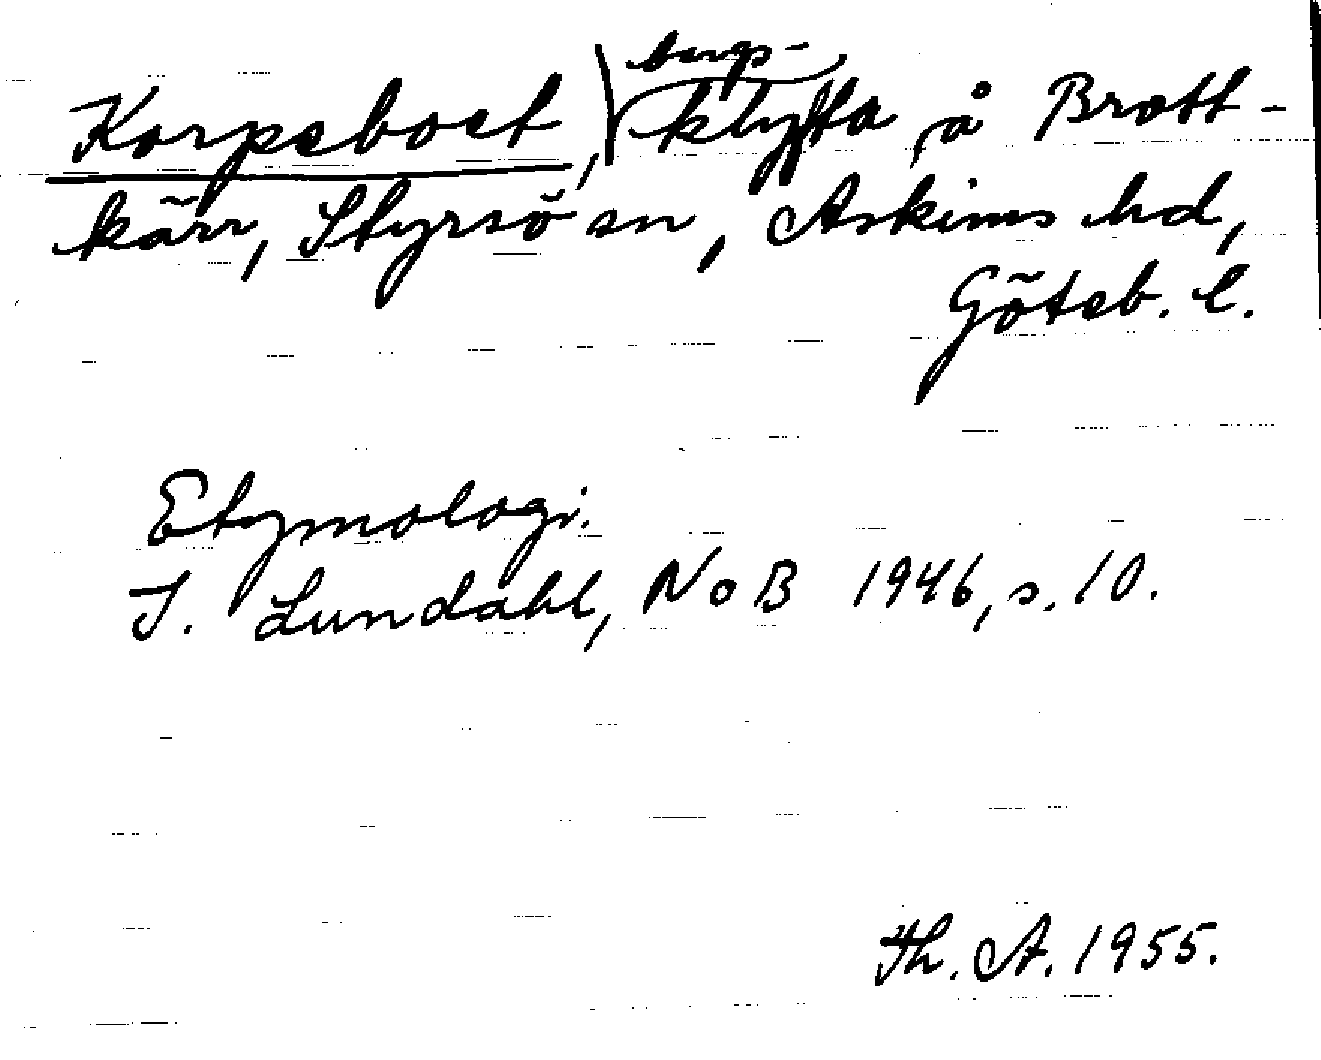 Korpeboet, bergs-
klyfta på Bratt-
kärr, Styrsö sn, Askims hd,
Göteb. l.
Etymologi.
I. Lundahl, NoB 1946, s. 10.
Th. A. 1955.